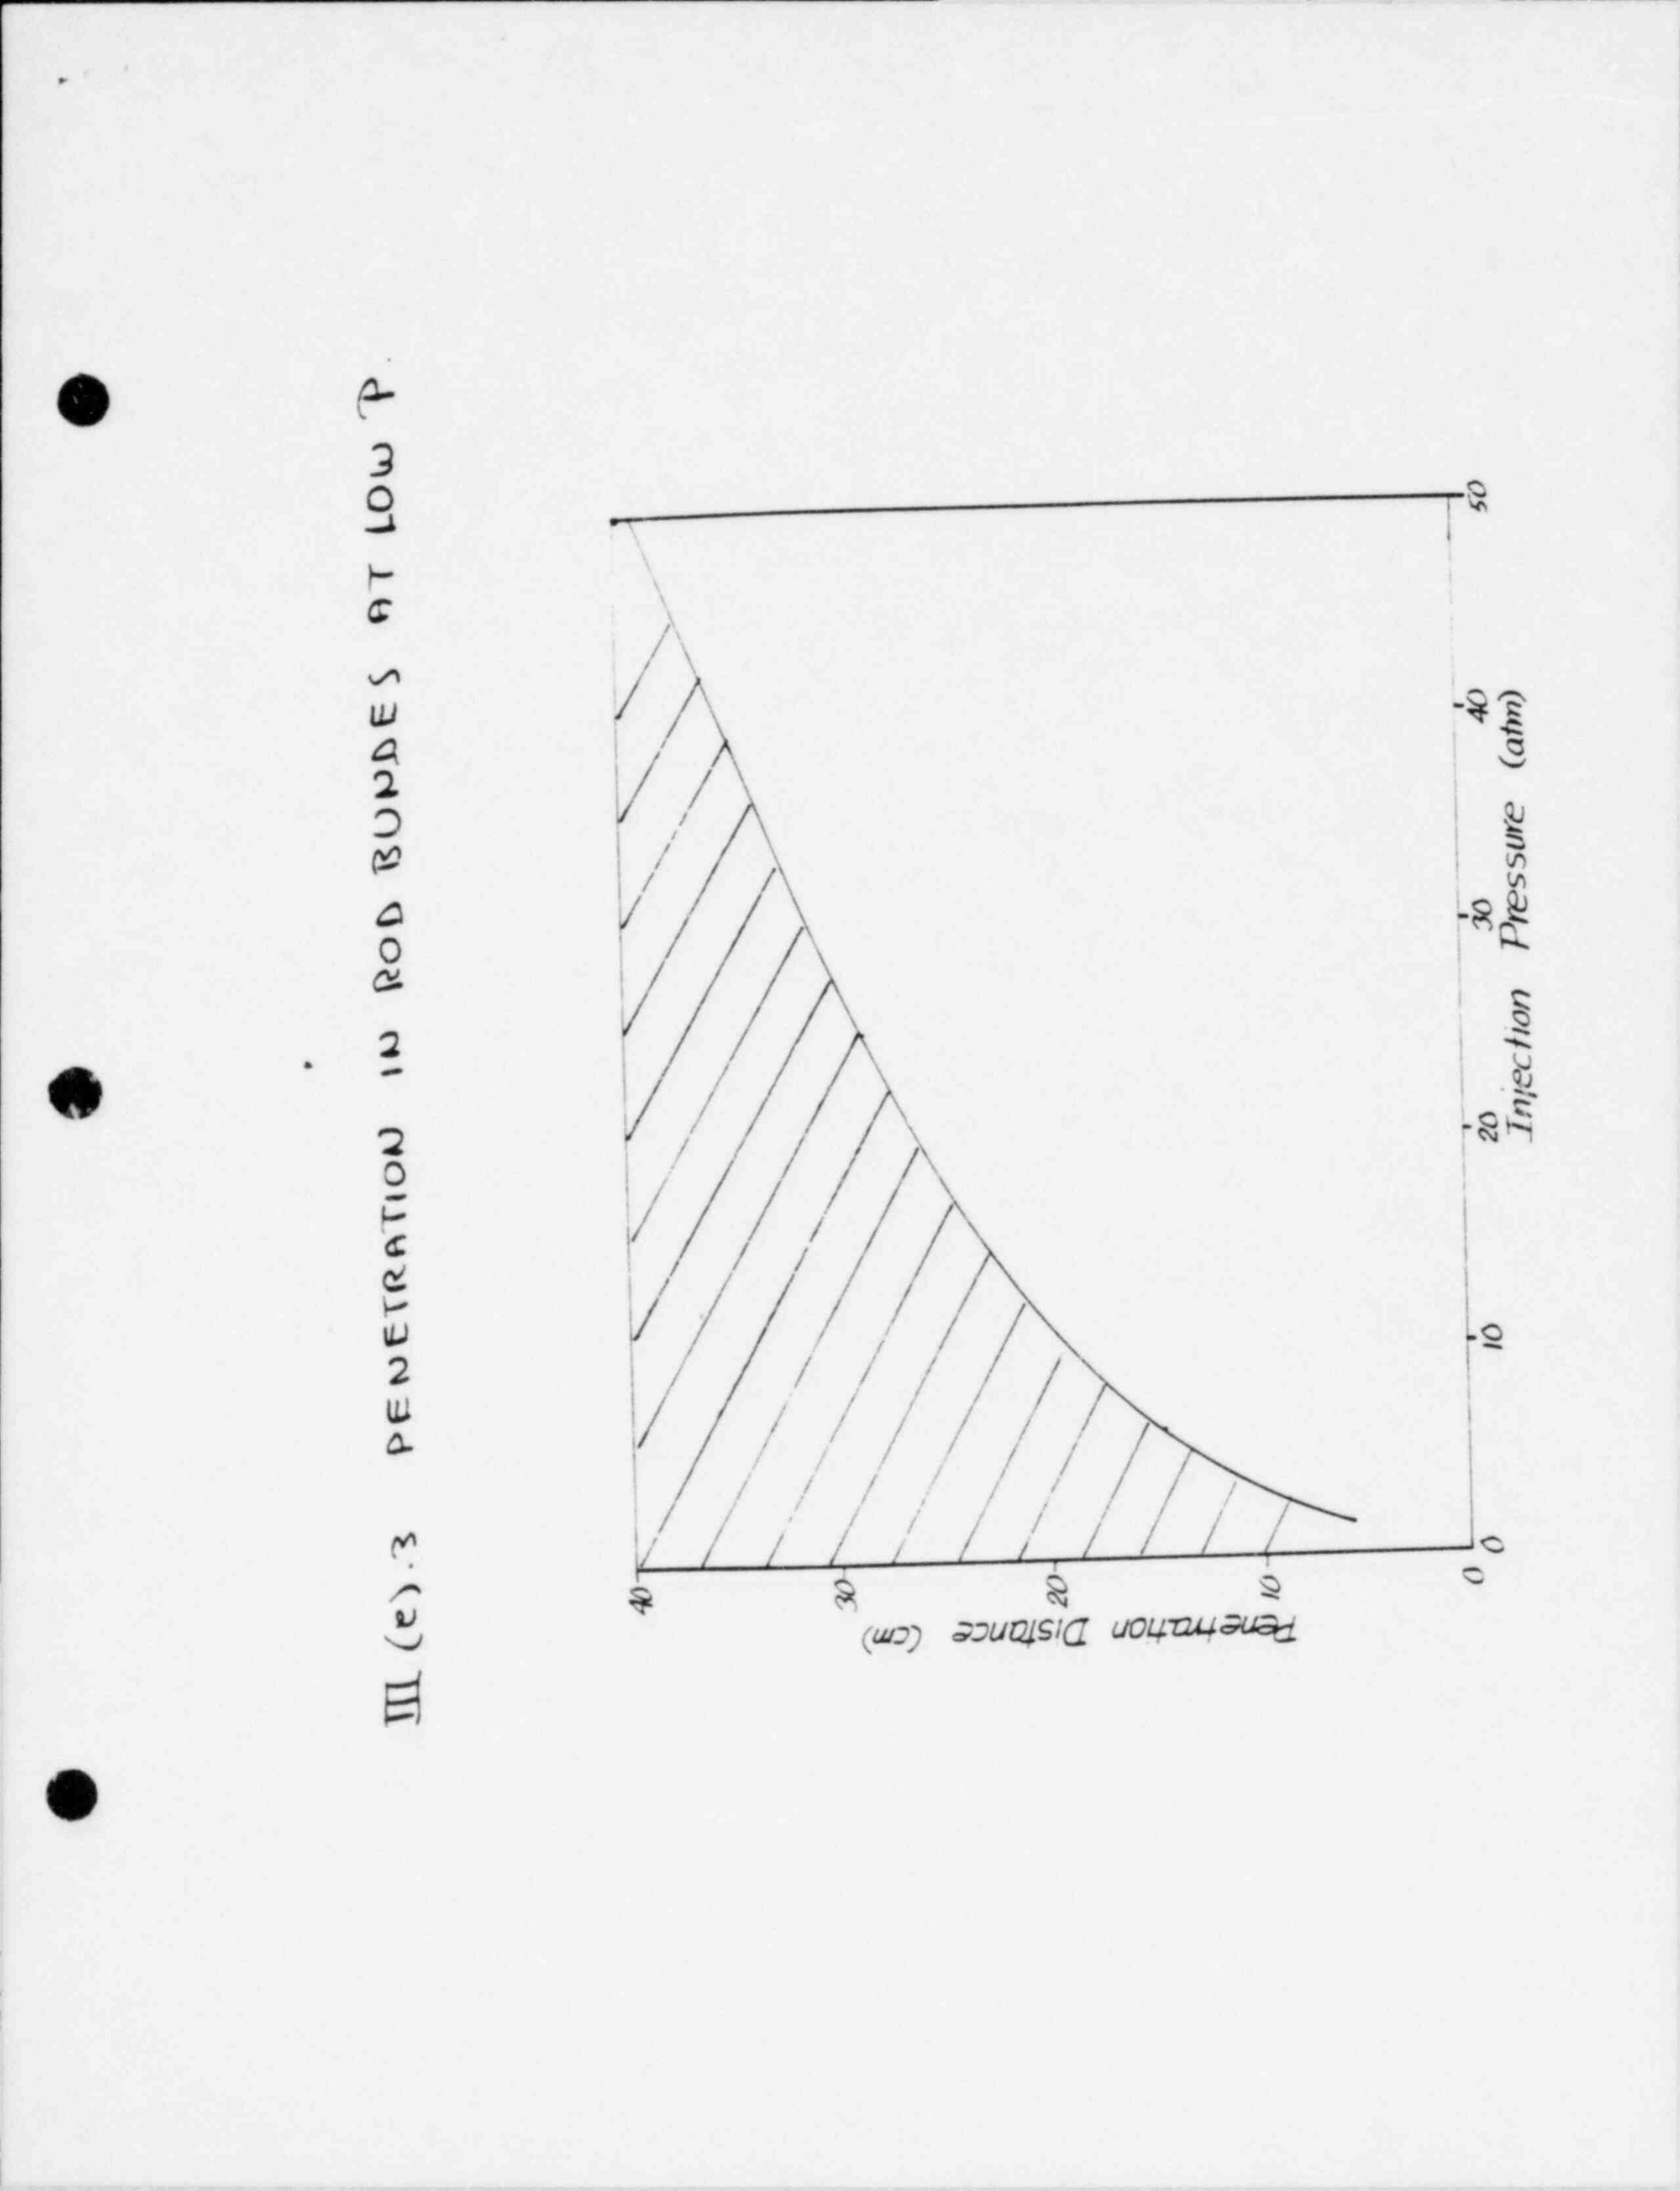 III (e).3 PENETRATION IN ROD BUNDES AT LOW P.
40
30
20
10
0
Penetration Distance (cm)
0 10 20 30 40 50
Injection Pressure (atm)